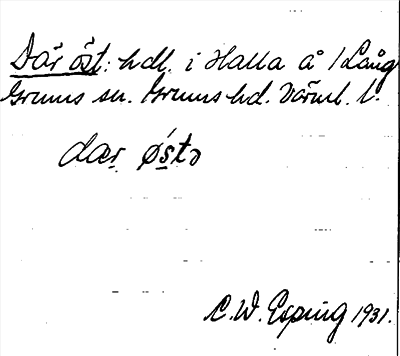 Där öst: hdl. i Halla å / Lång
Grums sn. Grums hd. Värml. l.
dær østə
C. W. Esping 1931.